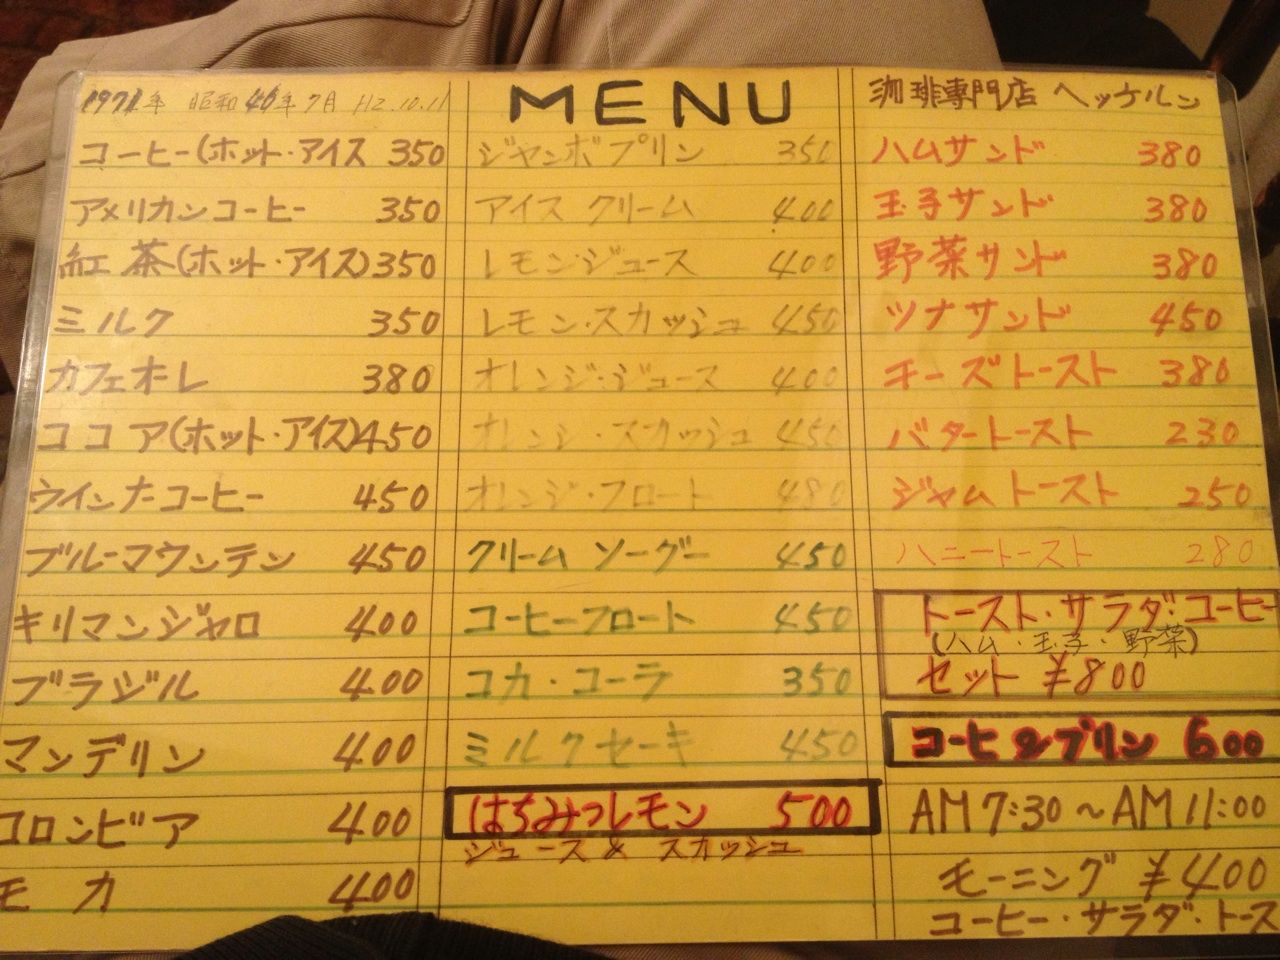 1971年 昭和46年7月 H2.10.11
コーヒー(ホット・アイス 350
アメリカンコーヒー 350
紅茶(ホット・アイス) 350
ミルク 350
カフェオーレ 380
ココア(ホット・アイス) 450
ウインナーコーヒー 450
ブルーマウンテン 450
キリマンジャロ 400
ブラジル 400
マンデリン 400
コロンビア 400
モカ 400
MENU
ジャンボプリン 350
アイスクリーム 400
レモン・ジュース 400
レモン・スカッシュ 450
オレンジ・ジュース 400
オレンジ・スカッシュ 450
オレンジ・フロート 480
クリームソーダー 450
コーヒーフロート 450
コカ・コーラ 350
ミルクセーキ 450
はちみつレモン 500
ジュース & スカッシュ
珈琲専門店 ヘッケルン
ハムサンド 380
玉子サンド 380
野菜サンド 380
ツナサンド 450
チーズトースト 380
バタートースト 230
ジャムトースト 250
ハニートースト 280
トースト・サラダ・コーヒー
(ハム・玉子・野菜)
セット ¥800
コーヒ&プリン 600
AM7:30～AM11:00
モーニング ¥400
コーヒー・サラダ・トース